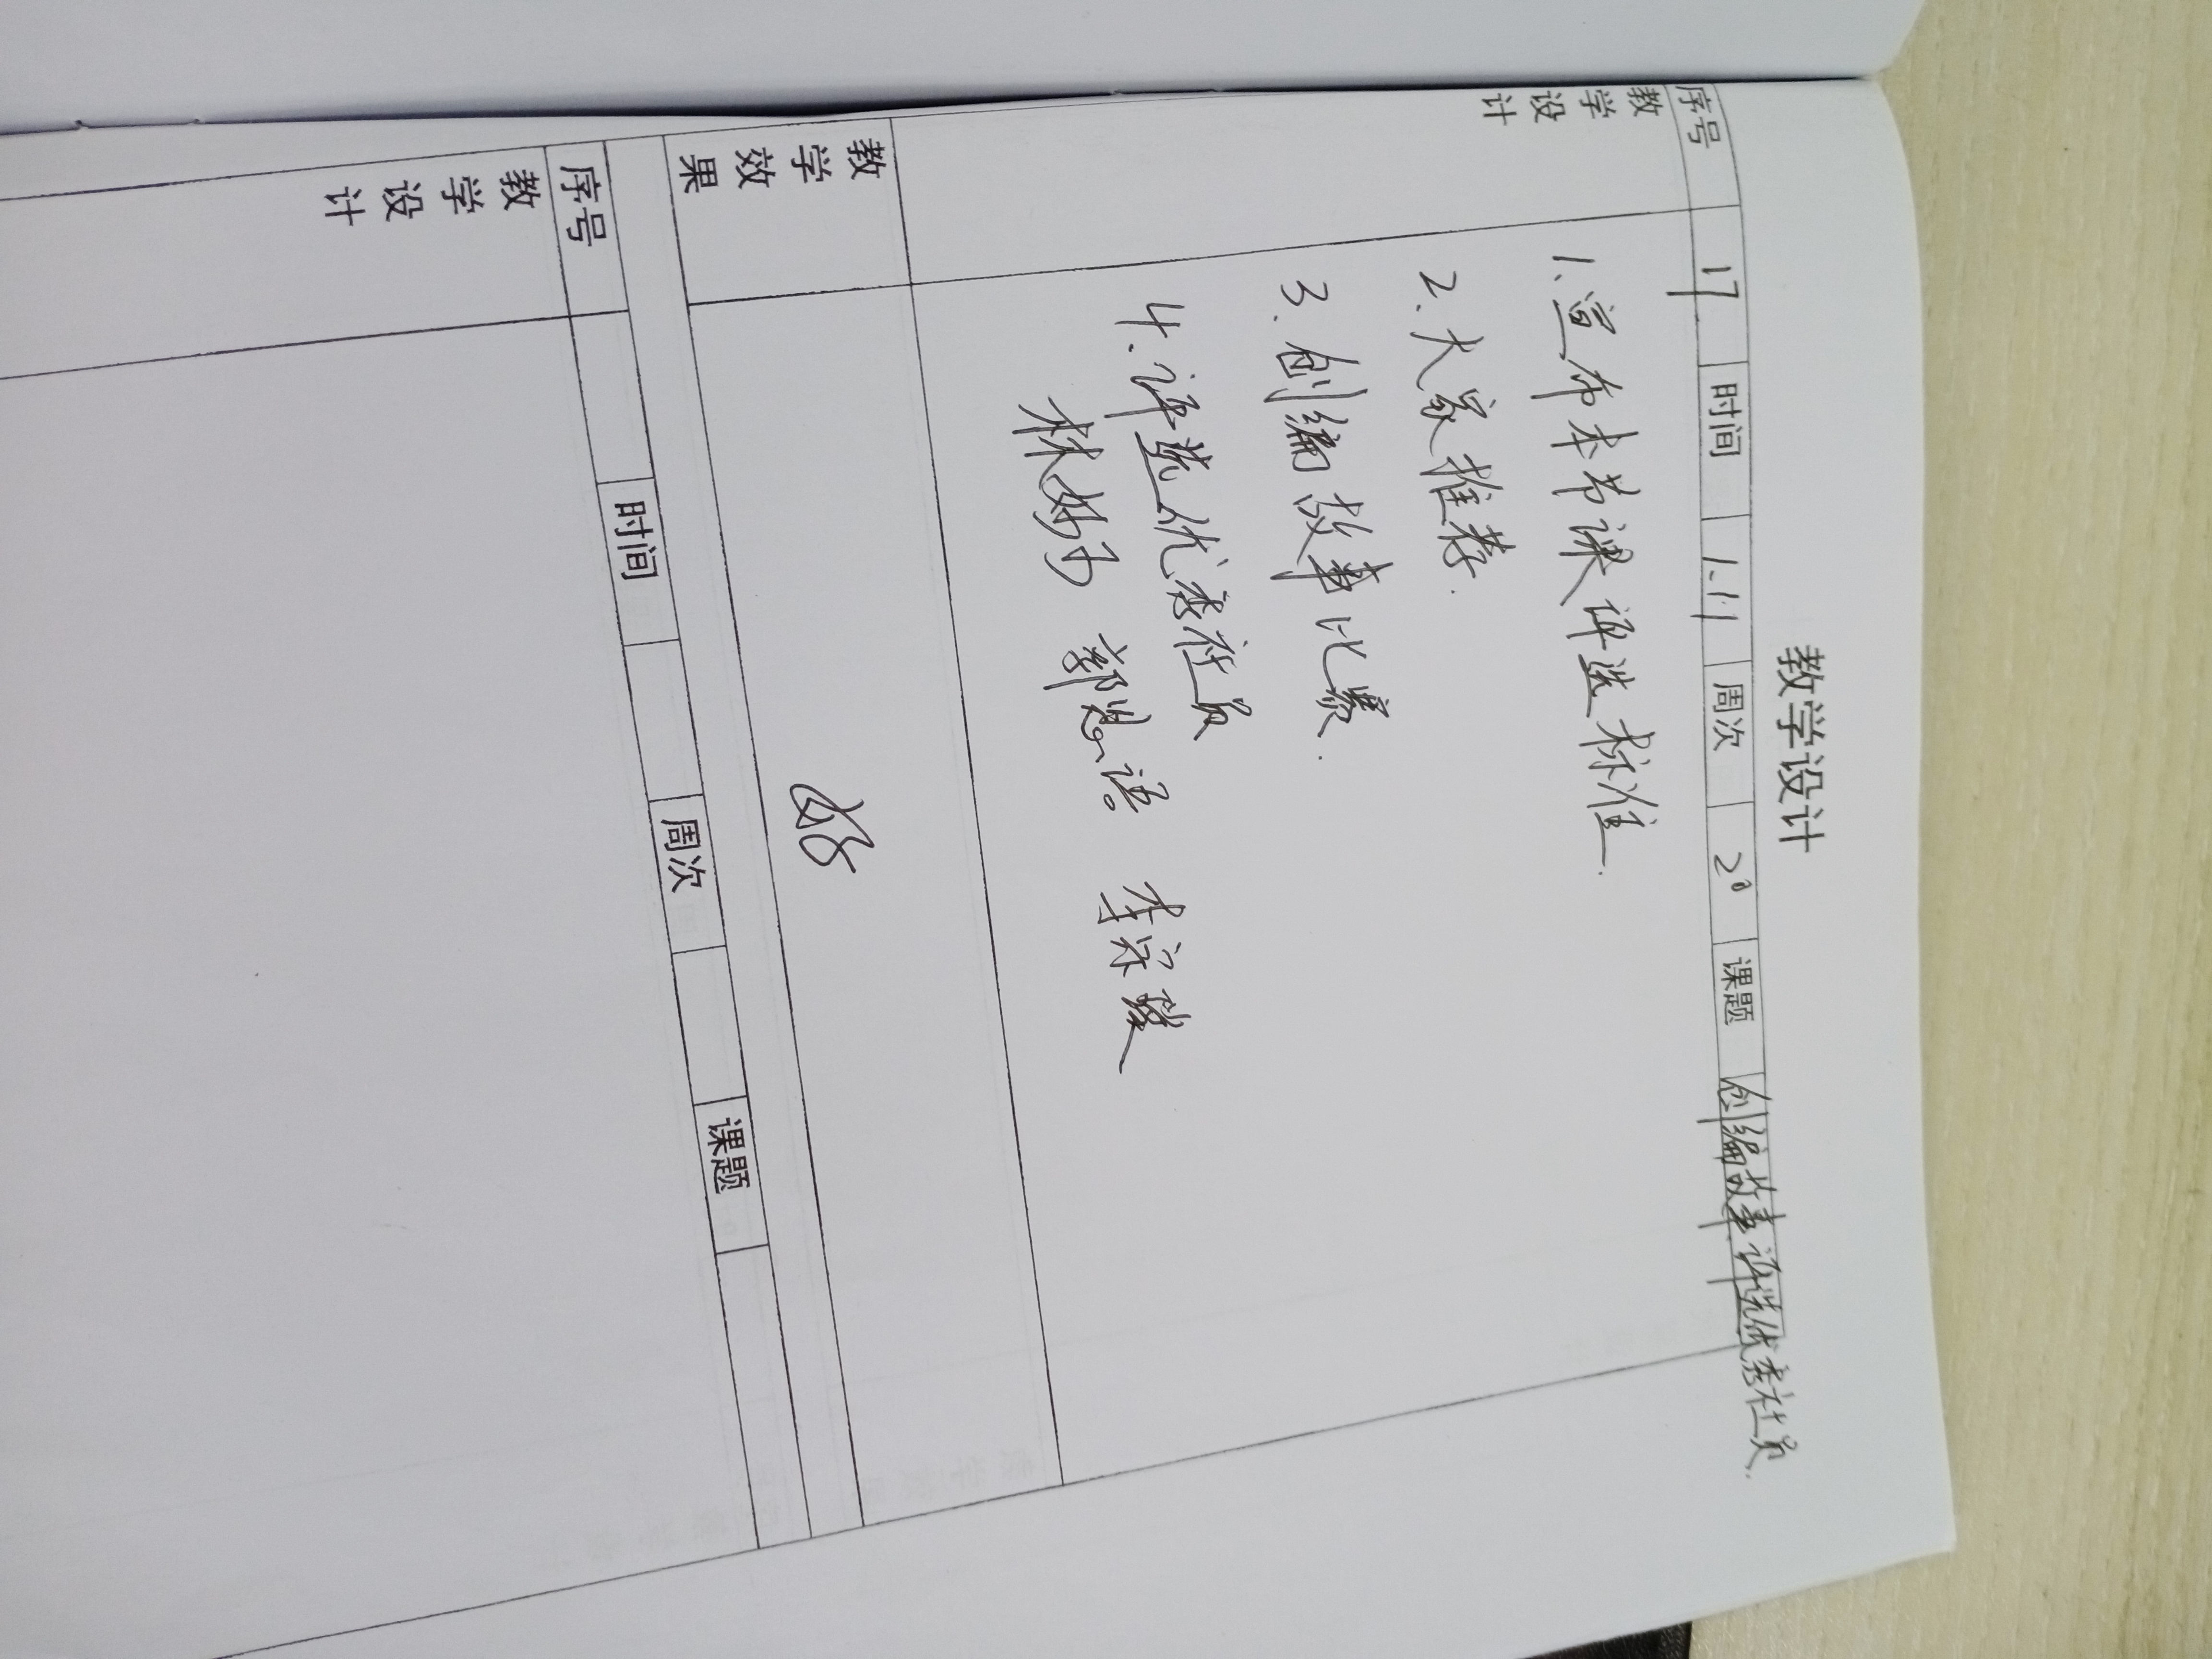 教学设计
序号 17 时间 1.11 周次 20 课题 创编故事评选优秀社员.
教学设计
1.宣布本节课评选标准.
2.大家推荐.
3.创编故事比赛.
4.评选优秀社员
林 郭 语 李
教学效果
好
序号 时间 周次 课题
教学设计